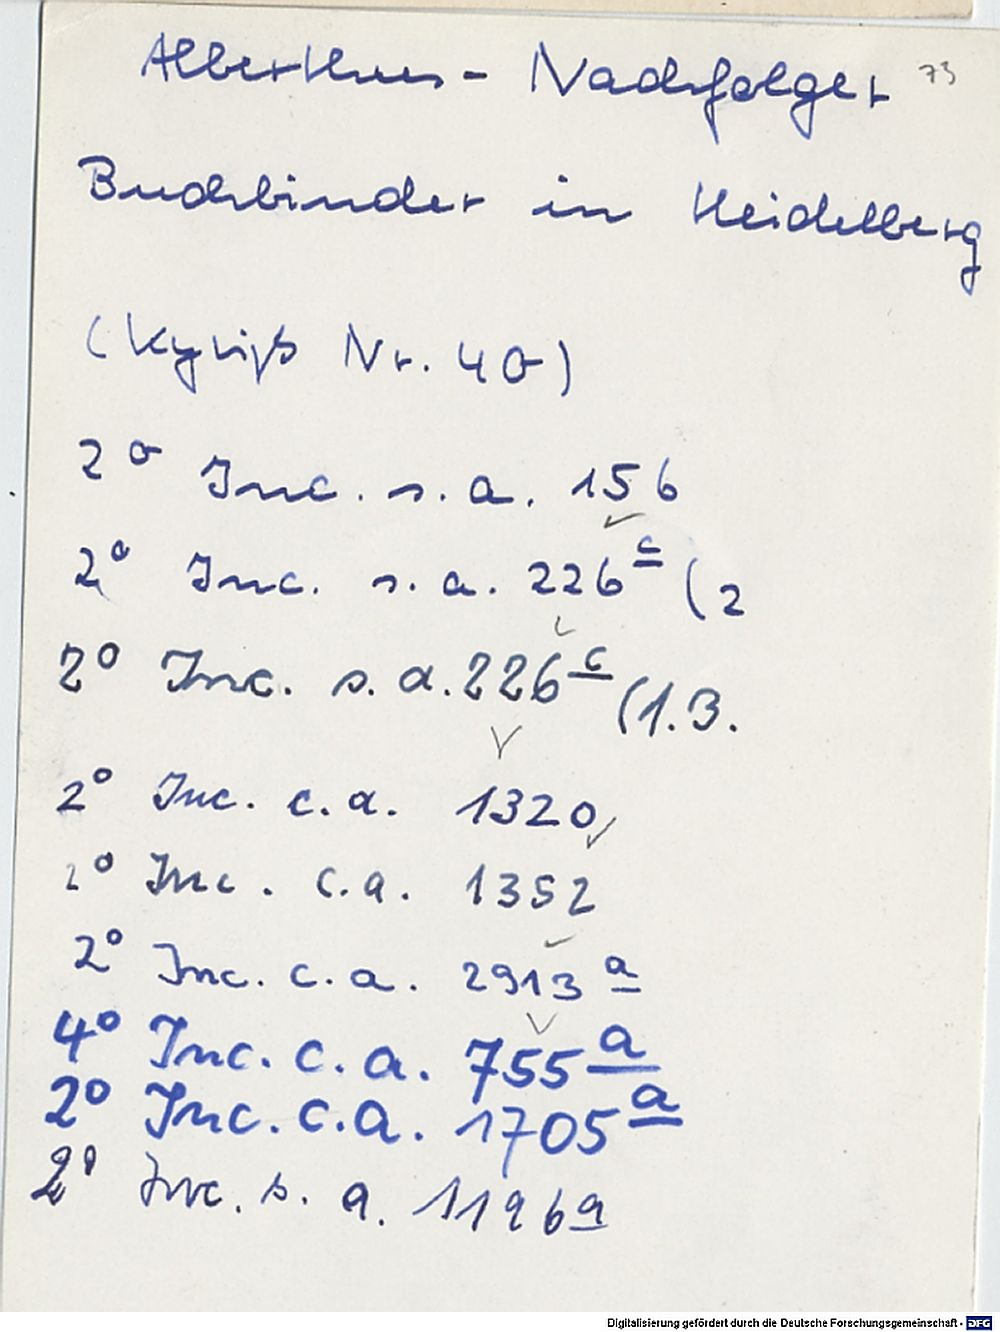 Alberthus - Nachfolger 73
Buchbinder in Heidelberg
(Kyriß Nr. 40)
2° Inc. s. a. 156
2° Inc. s. a. 226 c (2
2° Inc. s. a. 226 c (1.3.
2° Inc. c. a. 1320
2° Inc. c. a. 1352
2° Inc. c. a. 2913 a
4° Inc. c. a. 755 a
2° Inc. c. a. 1705 a
2° Inc. s. a. 1196 a
Digitalisierung gefördert durch die Deutsche Forschungsgemeinschaft - DFG